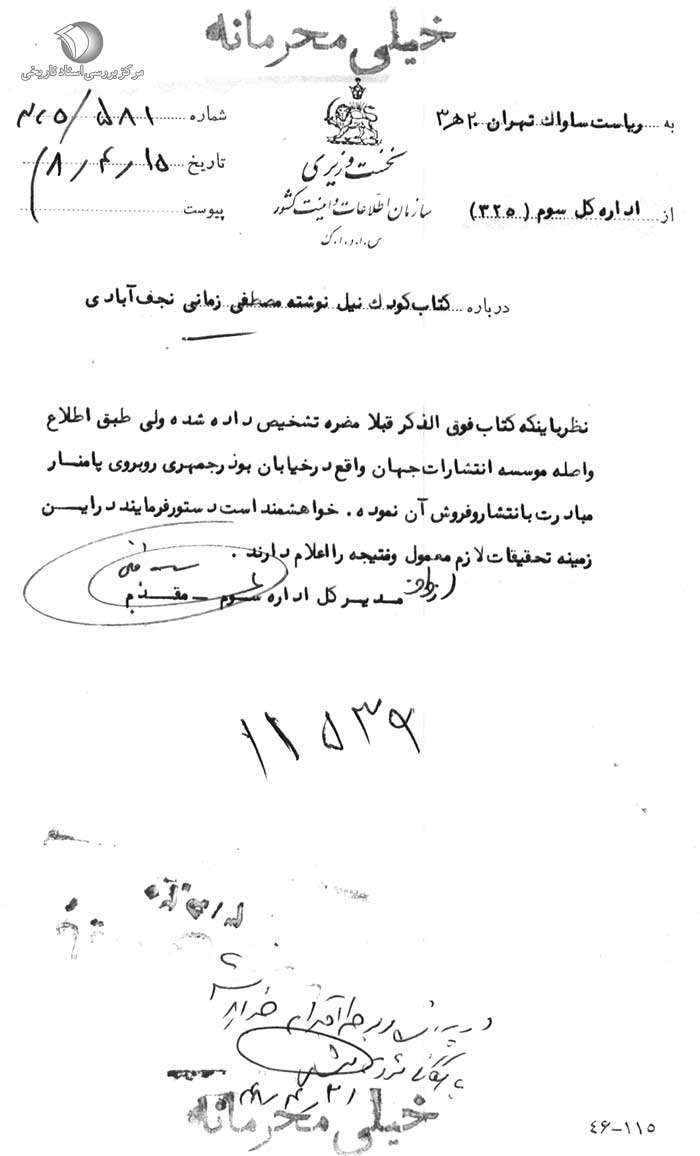 خیلی محرمانه
مرکز بررسی اسناد تاریخی
به ریاست ساواک تهران ۲۰ هـ ۳
شماره ۵۸۱/
نخست وزیری
تاریخ ۱۵
از اداره کل سوم (۳۲۵)
سازمان اطلاعات و امنیت کشور
پیوست
س.ا.و.ا.ک
درباره کتاب کودک نیل نوشته مصطفی زمانی نجف آبادی
نظر باینکه کتاب فوق الذکر قبلا مضره تشخیص داده شده ولی طبق اطلاع
واصله موسسه انتشارات جهان واقع در خیابان بوذرجمهری روبروی پامنار
مبادرت بانتشار و فروش آن نموده . خواهشمند است دستور فرمایند در این
زمینه تحقیقات لازم معمول و نتیجه را اعلام دارند .
مدیر کل اداره سوم ـ مقدم
از طرف
۱۱۵۳۶
خیلی محرمانه
۴۶-۱۱۵